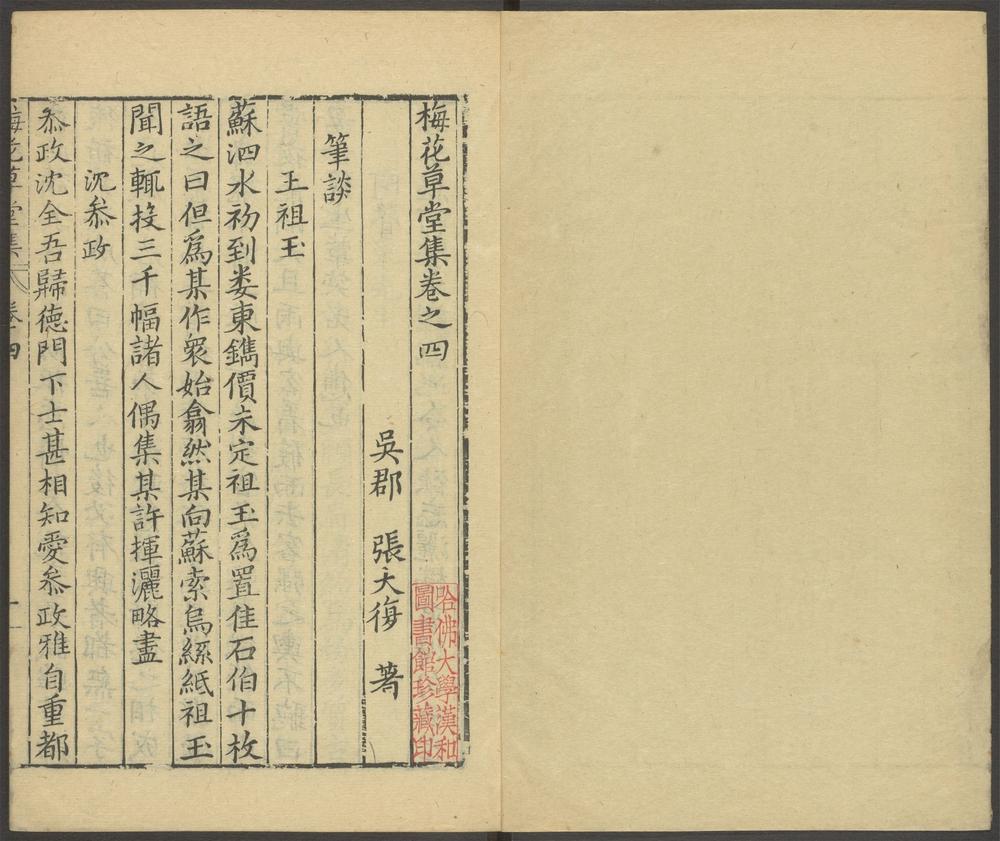 梅花草堂集卷之四
吳郡　張大復　著
筆談
王祖玉
蘇泗水初到婁東鐫價未定祖玉爲置佳石伯十枚
語之曰但爲某作衆始翕然某向蘇索烏絲紙祖玉
聞之輒投三千幅諸人偶集某許揮灑略盡
沈叅政
叅政沈全吾歸德門下士甚相知愛叅政雅自重都
梅花草堂集
卷四
一
哈佛大學漢和
圖書館珍藏印